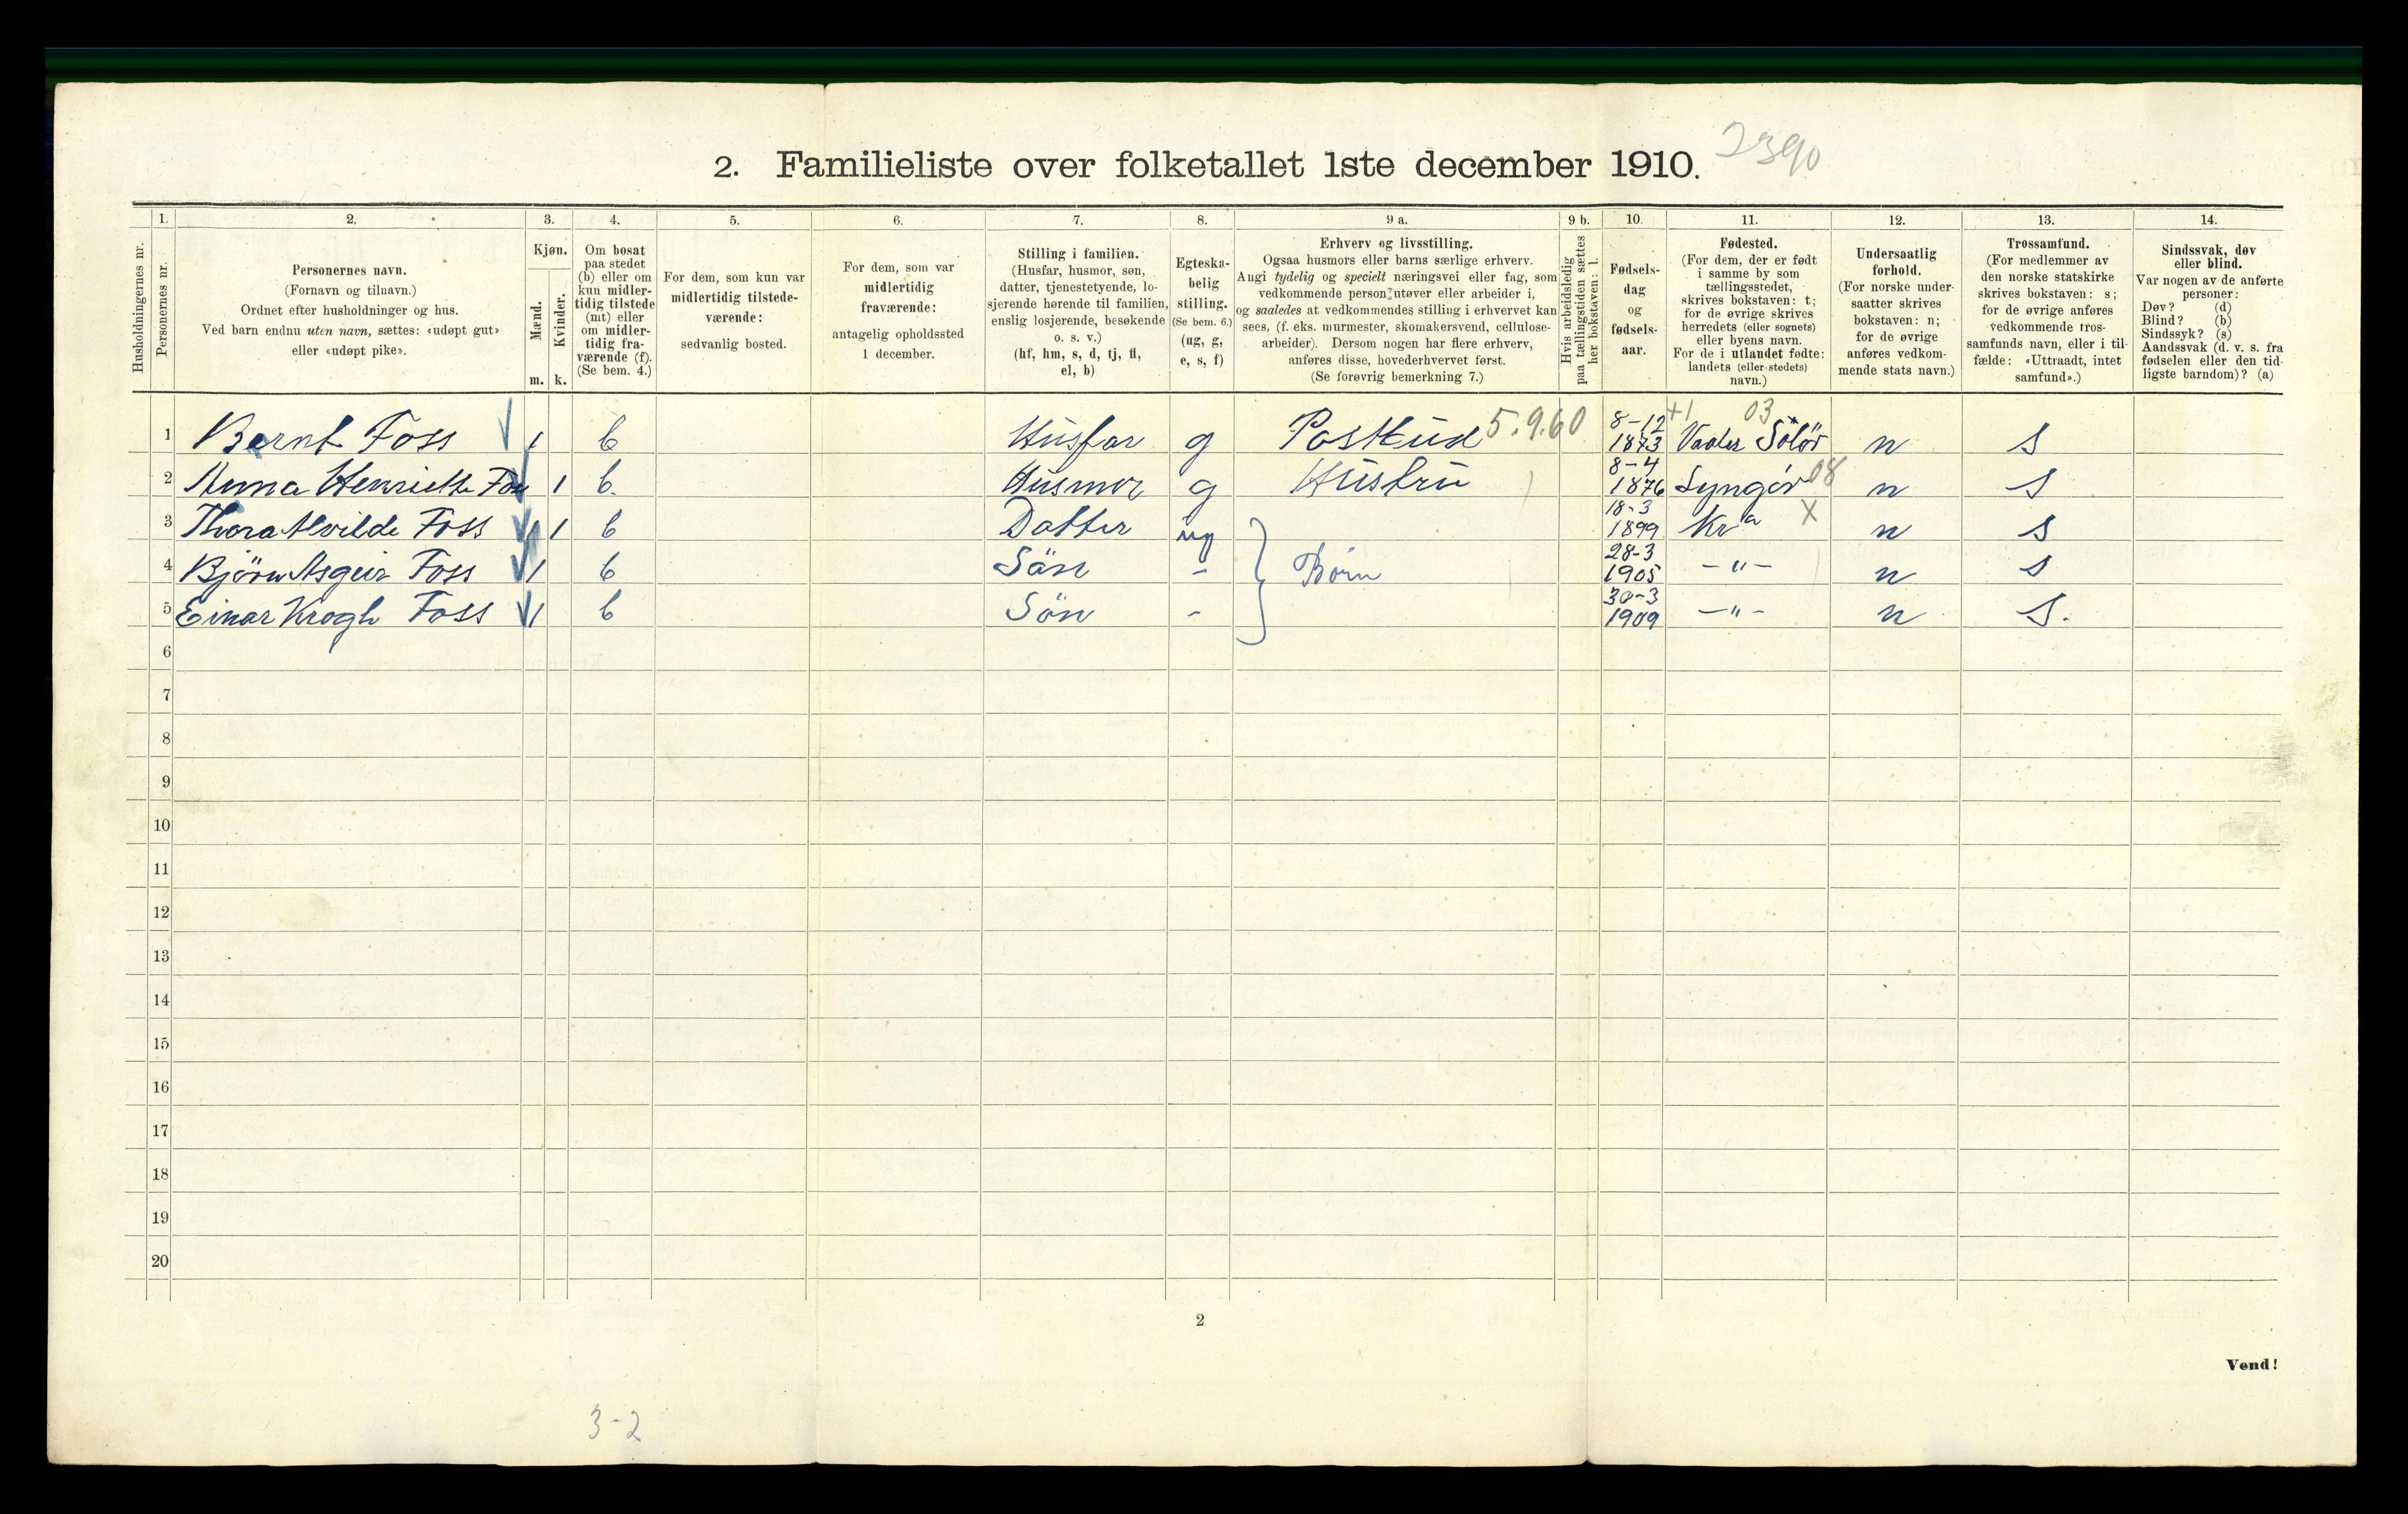 2390
2. Familieliste over folketallet 1ste december 1910.
1. 2. 3. 4. 5. 6. 7. 8. 9 a. 9 b. 10. 11. 12. 13. 14.
Husholdningernes nr.
Personernes nr.
Personernes navn.
(Fornavn og tilnavn.)
Ordnet efter husholdninger og hus.
Ved barn endnu uten navn, sættes: «udøpt gut»
eller «udøpt pike».
Kjøn.
Mænd.
Kvinder.
m. k.
Om bosat
paa stedet
(b) eller om
kun midler-
tidig tilstede
(mt) eller
om midler-
tidig fra-
værende (f).
(Se bem. 4.)
For dem, som kun var
midlertidig tilstede-
værende:
sedvanlig bosted.
For dem, som var
midlertidig
fraværende:
antagelig opholdssted
1 december.
Stilling i familien.
(Husfar, husmor, søn,
datter, tjenestetyende, lo-
sjerende hørende til familien,
enslig losjerende, besøkende
o. s. v.)
(hf, hm, s, d, tj, fl,
el, b)
Egteska-
belig
stilling.
(Se bem. 6.)
(ug, g,
e, s, f)
Erhverv og livsstilling.
Ogsaa husmors eller barns særlige erhverv.
Angi tydelig og specielt næringsvei eller fag, som
vedkommende person utøver eller arbeider i,
og saaledes at vedkommendes stilling i erhvervet kan
sees, (f. eks. murmester, skomakersvend, cellulose-
arbeider). Dersom nogen har flere erhverv,
anføres disse, hovederhvervet først.
(Se forøvrig bemerkning 7.)
Hvis arbeidsledig
paa tællingstiden sættes
her bokstaven: l.
Fødsels-
dag
og
fødsels-
aar.
Fødested.
(For dem, der er født
i samme by som
tællingsstedet,
skrives bokstaven: t;
for de øvrige skrives
herredets (eller sognets)
eller byens navn.
For de i utlandet fødte:
landets (eller stedets)
navn.)
Undersaatlig
forhold.
(For norske under-
saatter skrives
bokstaven: n;
for de øvrige
anføres vedkom-
mende stats navn.)
Trossamfund.
(For medlemmer av
den norske statskirke
skrives bokstaven: s;
for de øvrige anføres
vedkommende tros-
samfunds navn, eller i til-
fælde: «Uttraadt, intet
samfund».)
Sindssvak, døv
eller blind.
Var nogen av de anførte
personer:
Døv? (d)
Blind? (b)
Sindssyk? (s)
Aandssvak (d. v. s. fra
fødselen eller den tid-
ligste barndom)? (a)
1 Bernt Foss 1 b Husfar g Postbud 5.9.60 8-12 1873 Vaaler Solör 03 n s
2 Anna Henriette Foss 1 b. Husmor g Hustru 8-4 1876 Lyngör 08 n s
3 Thora Alvilde Foss 1 b Datter ug 18-3 1899 Kra X n s
4 Björn Asgeir Foss 1 b Sön - Børn 28-3 1905 -"- n s
5 Einar Krogh Foss 1 b Sön - 30-3 1909 -"- n s.
6
7
8
9
10
11
12
13
14
15
16
17
18
19
20
2
Vend!
3-2